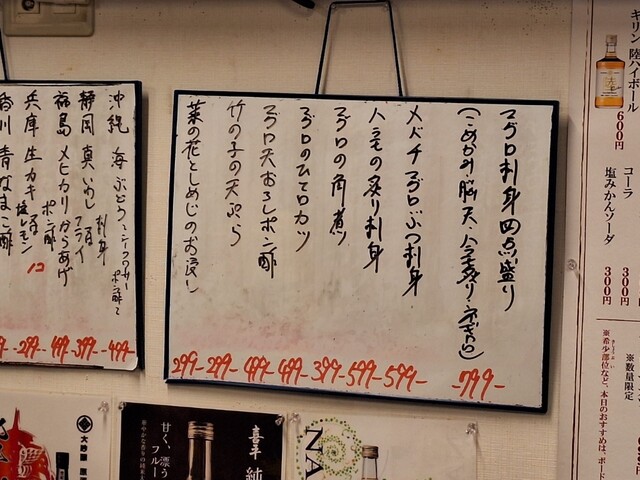 キリン 陸ハイボール
600円
コーラ 300円
塩みかんソーダ 300円
※数量限定
※希少部位など、本日のおすすめは、ボード
マグロ刺身四点盛り
(こめかみ・脳天・ハラモ炙り・ネギトロ) -799-
メバチマグロぶつ刺身 599-
ハラモの炙り刺身 599-
マグロの角煮 399-
マグロのひてロカツ 499-
マグロ天おろしポン酢 499-
竹の子の天ぷら 299-
菜の花としめじのお浸し 299-
沖縄 海ぶどう シークワサーポン酢で 499-
静岡 真いわし 刺身 又は フライ 399-
福島 メヒカリからあげ ポン酢 499-
兵庫 生カキ 又は 塩レモン 1コ 299-
香川 青なまこ酢
大吟醸
甘く、漂う
フルー
喜平
純
NA